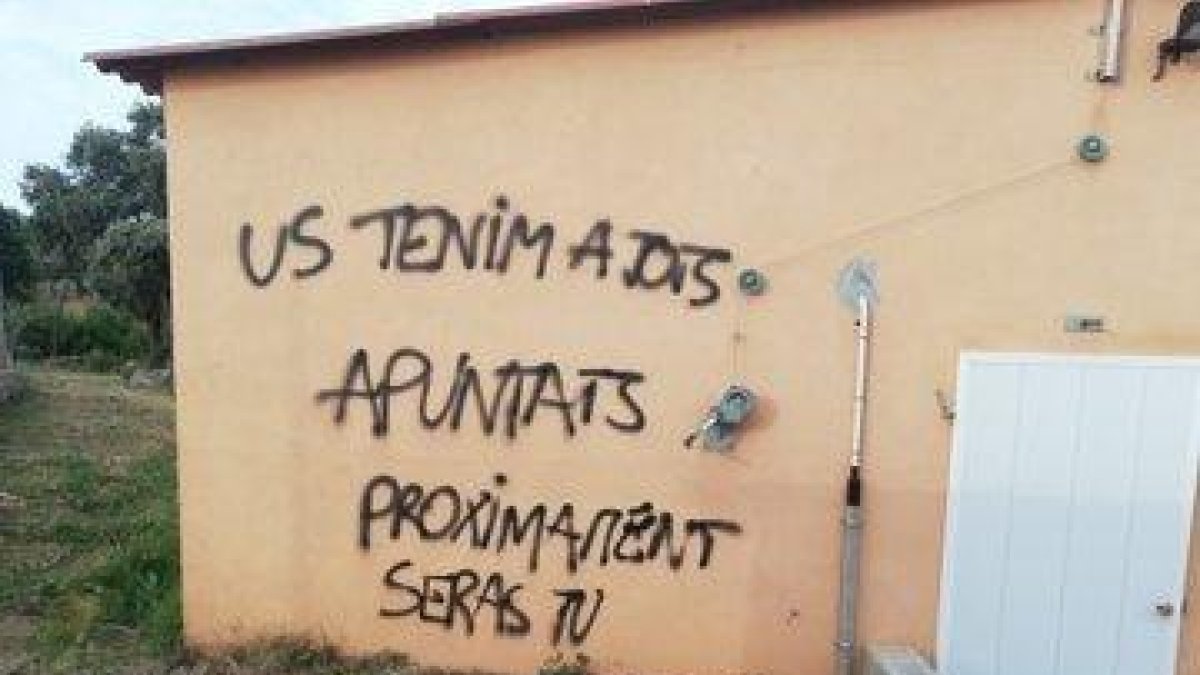 US TENIM A TOTS
APUNTATS
PROXIMAMENT
SERAS TU